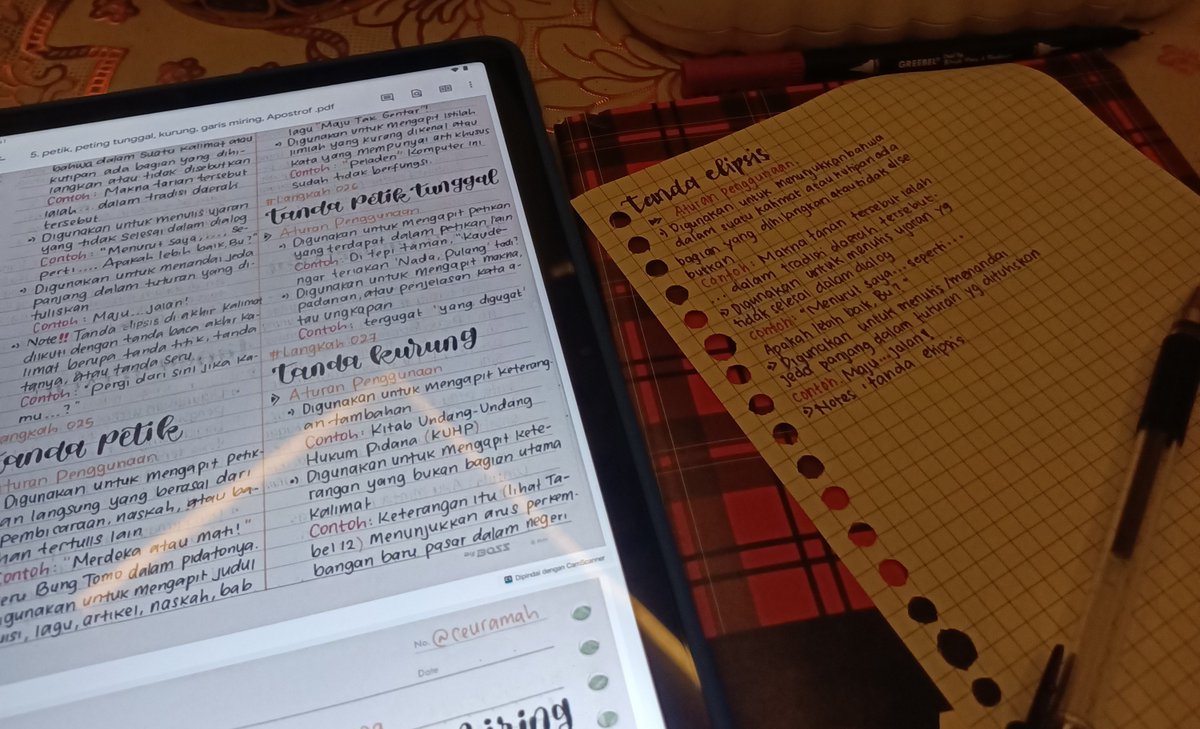 5. petik, peting tunggal, kurung, garis miring, Apostrof.pdf
bahwa dalam suatu kalimat atau
kutipan ada bagian yang dihi-
langkan atau tidak disebutkan
Contoh: Makna tarian tersebut
ialah... dalam tradisi daerah
tersebut
Digunakan untuk menulis ujaran
yang tidak selesai dalam dialog
Contoh: "Menurut saya..... se-
perti.... Apakah lebih baik, Bu?"
Digunakan untuk menandai jeda
panjang dalam tuturan yang di-
tuliskan
Contoh: Maju...Jalan!
Note!! Tanda elipsis di akhir kalimat
diikuti dengan tanda baca akhir ka-
limat berupa tanda titik, tanda
tanya, atau tanda seru.
Contoh: "Pergi dari sini jika ka-
mu...?"
Langkah 025
tanda petik
Aturan Penggunaan
Digunakan untuk mengapit petik-
an langsung yang berasal dari
Pembicaraan, naskah, atau ba-
han tertulis lain
Contoh: "Merdeka atau mati!"
seru Bung Tomo dalam pidatonya.
Digunakan untuk mengapit judul
puisi, lagu, artikel, naskah, bab
lagu "Maju Tak Gentar"!
Digunakan untuk mengapit istilah
ilmiah yang kurang dikenal atau
kata yang mempunyai arti khusus
Contoh: "Peladen" Komputer ini
sudah tidak berfungsi.
#Langkah 026
tanda petik tunggal
Aturan Penggunaan
Digunakan untuk mengapit petikan
yang terdapat dalam petikan lain
Contoh: Di tepi taman, "Kaude-
ngar teriakan 'Nada, Pulang' tadi?
Digunakan untuk mengapit makna,
padanan, atau penjelasan kata a-
tau ungkapan
Contoh: tergugat 'yang digugat'
#Langkah 027
tanda kurung
Aturan Penggunaan
Digunakan untuk mengapit keterang-
an tambahan
Contoh: Kitab Undang-Undang
Hukum Pidana (KUHP)
Digunakan untuk mengapit kete-
rangan yang bukan bagian utama
kalimat
Contoh: Keterangan itu (lihat Ta-
bel 12) Menunjukkan arus perkem-
bangan baru pasar dalam negeri
BOSS
Dipindai dengan CamScanner
No. @ceuramah
Date
miring
GREEBEL
tanda elipsis
Aturan Penggunaan
Digunakan untuk menunjukkan bahwa
dalam suatu kalimat atau kutipan ada
bagian yang dihilangkan atau tidak dise
butkan
Contoh: Makna tarian tersebut ialah
... dalam tradisi daerah tersebut.
Digunakan untuk menulis ujaran yg
tidak selesai dalam dialog
contoh: "Menurut saya... seperti...
Apakah lebih baik, Bu?"
Digunakan untuk menulis/menandai
jeda panjang dalam tuturan yg dituliskan
contoh: Maju...Jalan!
Notes: tanda elipsis